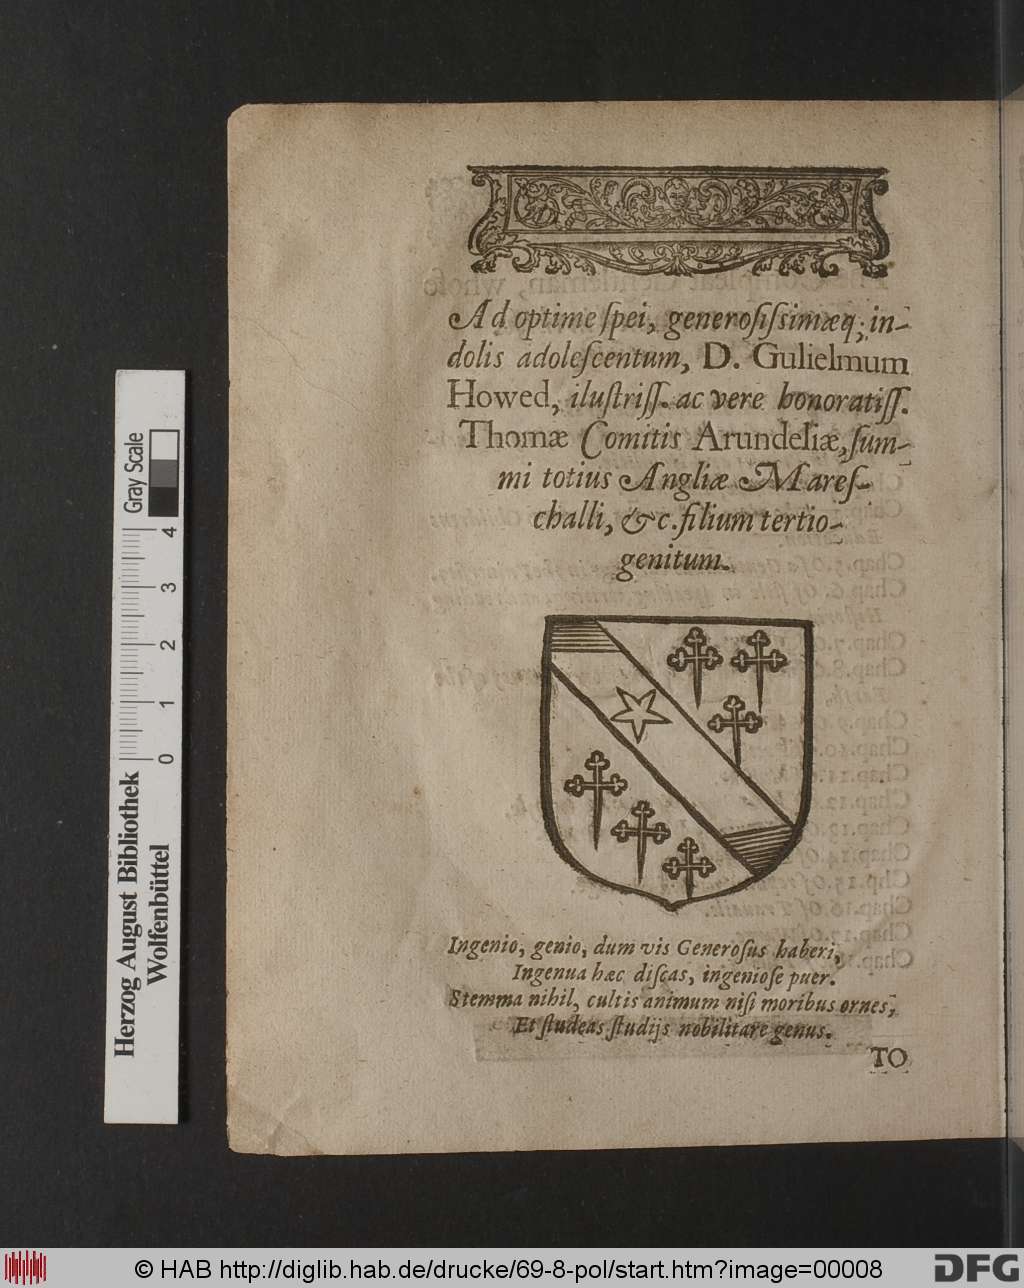 Ad optime ſpei, generoſiſsimæq; in-
dolis adoleſcentum, D. Gulielmum
Howed, iluſtriſſ. ac vere honoratiſſ.
Thomæ Comitis Arundeliæ, ſum-
mi totius Angliæ Mareſ-
challi, &c. filium tertio-
genitum.
Ingenio, genio, dum vis Generoſus haberi,
Ingenua hæc diſcas, ingenioſe puer.
Stemma nihil, cultis animum niſi moribus ornes,
Et ſtudeas ſtudijs nobilitare genus.
TO
Herzog August Bibliothek
Wolfenbüttel
Gray Scale
0 1 2 3 4
© HAB http://diglib.hab.de/drucke/69-8-pol/start.htm?image=00008
DFG